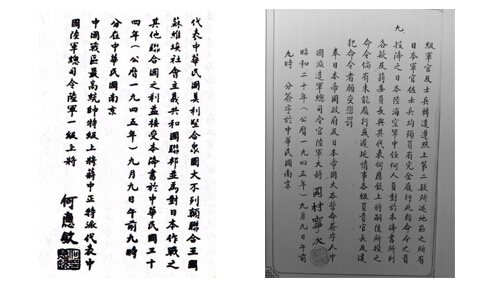 代表中華民國美利堅合衆國大不列顛聯合王國
蘇維埃社會主義共和國聯邦並為對日本作戰之
其他聯合國之利益接受本降書於中華民國三十
四年（公曆一九四五年）九月九日午前九時
分在中華民國南京
中國戰區最高統帥特級上將蔣中正特派代表中
國陸軍總司令陸軍一級上將
何應欽
級軍官及士兵轉達遵照上第二款所述地區之所有
日本軍官佐士兵均須負有完全履行此類命令之責
九 投降之日本陸海空軍中任何人員對於本降書所列
各款及蔣委員長與其代表何應欽上將嗣後所授之
命令倘有未能履行或遲延情事各級負責官長及違
犯命令者願受懲罰
奉日本帝國政府及日本帝國大本營命簽字人中
國派遣軍總司令官陸軍大將 岡村寧次
昭和二十年（公曆一九四五年）九月九日午前
九時 分簽字於中華民國南京